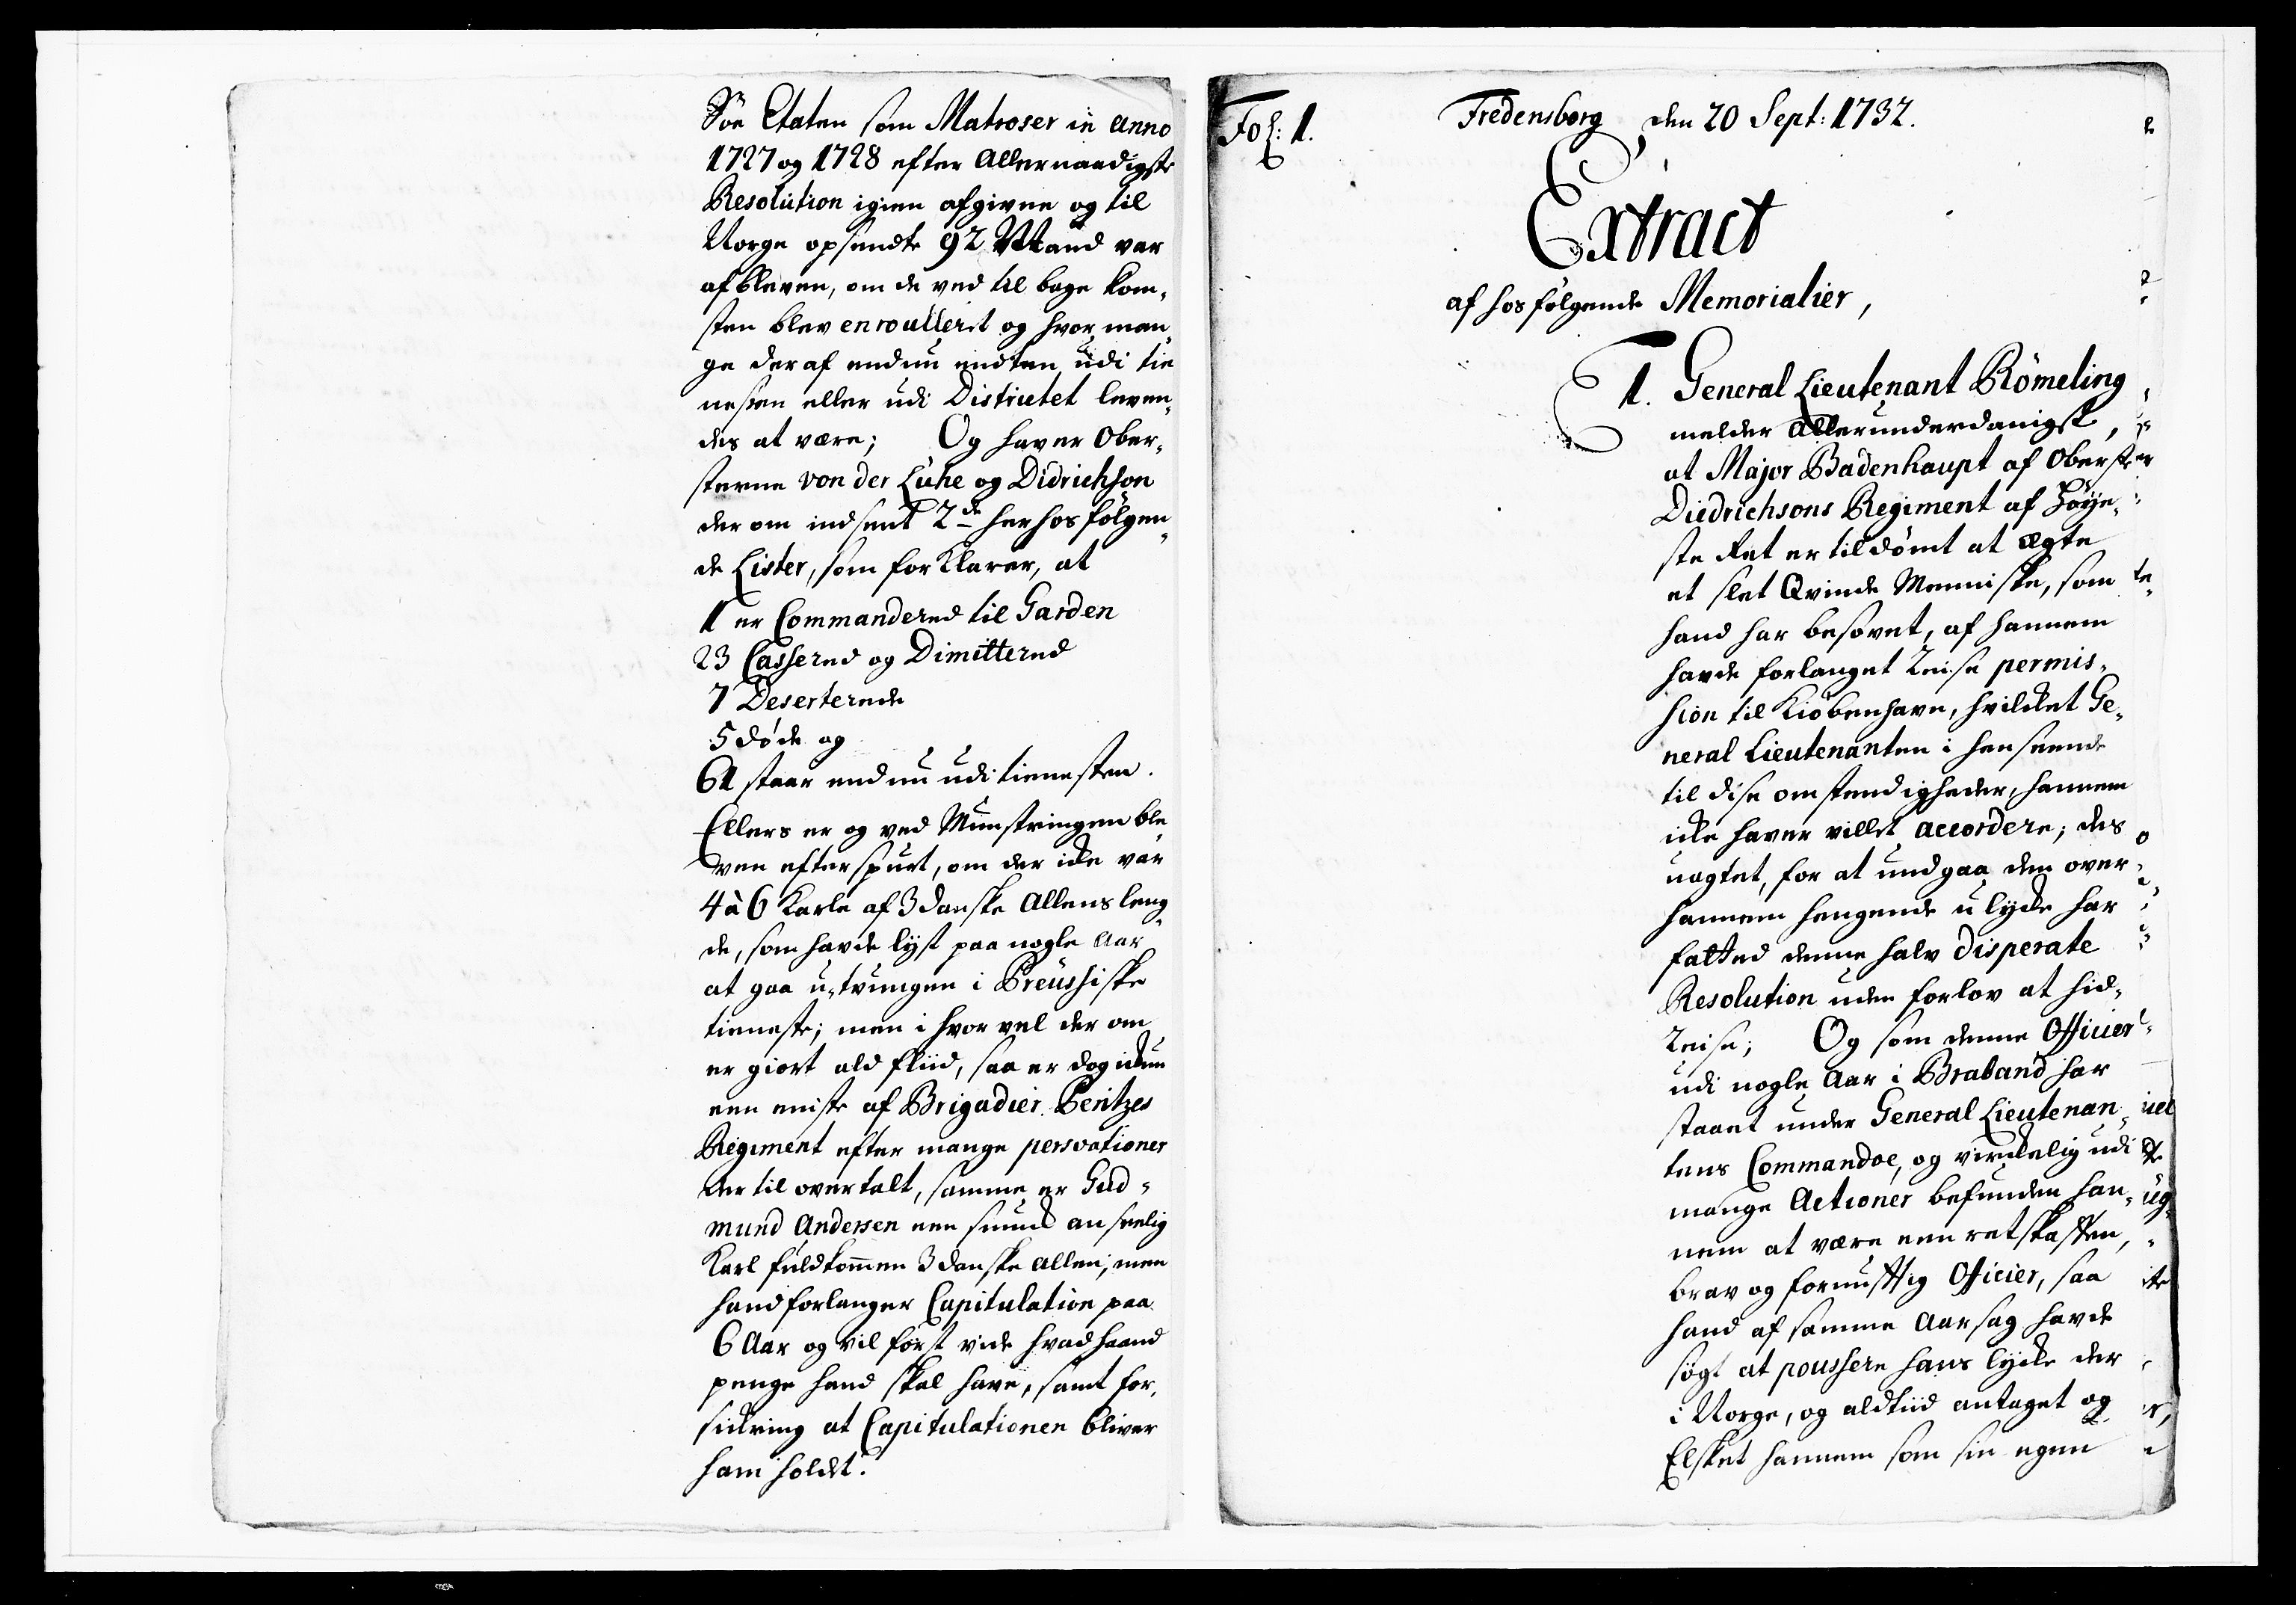 Söe Etaten som Matroser in anno
1727 og 1728 efter Allernaadigste
Resolution igien afgivne og til
Norge opsendte 92 Mand var
afbleven, om de ved til bage kom-
sten blev enroulleret og hvor man
ge deraf endnu endten udi tie
nesten eller udi Distrietet leven-
des at være; Og haver Ober-
sterne von der Lühe og Didrichson
der om indsent 2de herhos følgen-
de Lister, som forklarer, at
1 er Commandered til Garden
23 Cassered og Dimittered
7 Deserterede
5 døde og
61 staar endnu udi tienesten.
Ellers er og ved Munstringen ble
ven efterspurt, om der icke var
4 à 6 Karle af 3 danske Allens leng
de, som havde lyst paa nogle Aar
at gaa u-tvungen i Preussiske
tieneste; men i hvor vel der om
er giort ald fliid, saa er dog ickun
een eniste af Brigadier Peritzes
Regiment efter mange persvationer
der til overtalt, samme er Gud-
mund Andersen een smuck anseelig
Karl fuldkommen 3 danske Allen, men
hand forlanger Capitulation paa
6 Aar og vil først vide hvad haand
penge hand skal have, samt for-
sickring at Capitulationen bliver
ham holdt.
Fol: 1.
Fredensborg den 20 Sept: 1732.
Extract
af hosfølgende Memorialier,
1. General Lieutenant Römeling
melder Allerunderdanigst,
at Major Badenhaupt af Oberster
Diedrichsons Regiment af Høye-
ste Ret er tildømt at ægte
et slet Qvinde Menniske, som
hand har besovet, af hannem
havde forlanget Reise permis-
sion til Kiøbenhavn, hvilcket Ge-
neral Lieutenanten i henseende
til dise omstendigheder, hannem
icke haver villet accordere; des
uagtet, for at undgaa den over
hannem hengende ulycke har
fatted denne halv disperate
Resolution uden forlov at hid-
Reise; Og som denne Officier
udi nogle Aar i Braband har
staaet under General Lieutenan-
tens Commandoe, og virckelig udi
mange Actioner befunden han-
nem at være een retskaffen,
brav og fornufftig Officier, saa
hand af samme Aarsag havde
søgt at poussere hans lycke der
i Norge, og aldtiid antaget og
Elsket hannem som sin egen